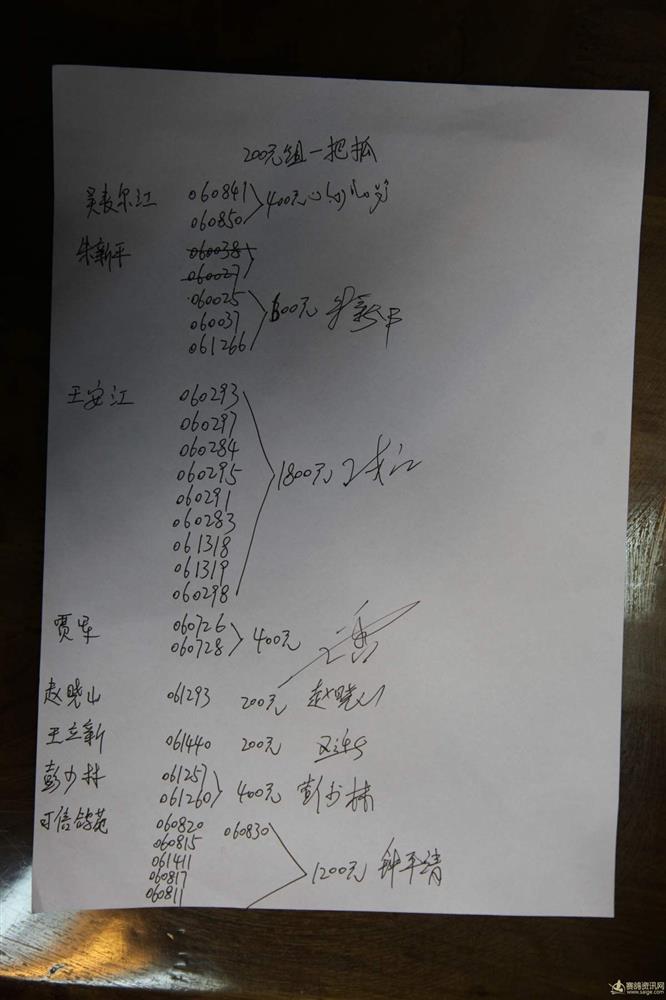 200元组一把抓
吴麦尔江 060841 400元
060850
朱新平 060038
060027
060025
060037 600元 朱新平
061266
王安江 060293
060297
060284
060295 1800元
060291
060283
061318
061319
060298
贾军 060726
060728 400元
赵晓山 061293 200元 赵晓山
王立新 061440 200元
彭少林 061257
061260 400元 彭少林
可信鸽苑 060820 060830
060815
061411 1200元 钟平清
060817
060811
赛鸽资讯网
www.saige.com